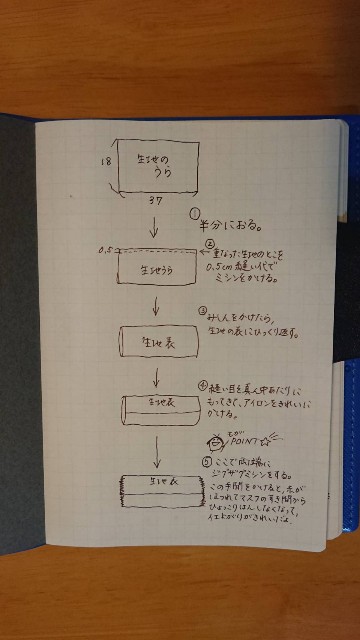 生地の
うら
18
37
① 半分におる。
0.5
生地うら
② 重なった生地のとこを
0.5cm縫い代で
ミシンをかける。
③ みしんをかけたら、
生地の表にひっくり返す。
生地表
④ 縫い目を真ん中あたりに
もってきて、アイロンをきれいに
かける。
生地表
POINT☆
⑤ ここで両端に
ジグザグミシンをする。
この手間をかけると、糸が
ほつれてマスクのすき間から
ひょっこりはんしなくなって、
仕上がりがきれいだよ。
生地表